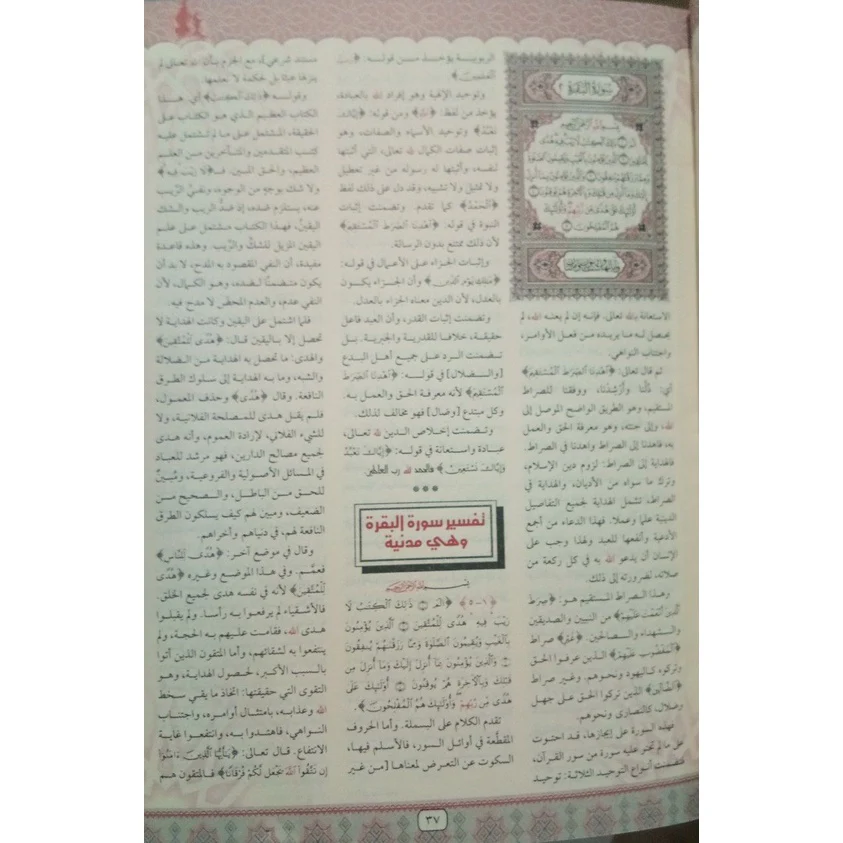 سورة البقرة ٢
الاستعانة بالله تعالى. فإنه إن لم يعنه الله، لم
يحصل له ما يريده من فعل الأوامر،
واجتناب النواهي.
ثم قال تعالى: ﴿ٱهْدِنَا ٱلصِّرَٰطَ ٱلْمُسْتَقِيمَ﴾
أي: دُلَّنا وأرْشِدْنا، ووفقنا للصراط
المستقيم، وهو الطريق الواضح الموصل إلى
الله، وإلى جنته، وهو معرفة الحق والعمل
به، فاهدنا إلى الصراط واهدنا في الصراط.
فالهداية إلى الصراط: لزوم دين الإسلام،
وترك ما سواه من الأديان، والهداية في
الصراط، تشمل الهداية لجميع التفاصيل
الدينية علما وعملا. فهذا الدعاء من أجمع
الأدعية وأنفعها للعبد ولهذا وجب على
الإنسان أن يدعو الله به في كل ركعة من
صلاته، لضرورته إلى ذلك.
وهذا الصراط المستقيم هو: ﴿صِرَٰطَ
ٱلَّذِينَ أَنْعَمْتَ عَلَيْهِمْ﴾ من النبيين والصديقين
والشهداء والصالحين. ﴿غَيْرِ﴾ صراط
﴿ٱلْمَغْضُوبِ عَلَيْهِمْ﴾ الذين عرفوا الحق
وتركوه كاليهود ونحوهم. وغير صراط
﴿ٱلضَّآلِّينَ﴾ الذين تركوا الحق على جهل
وضلال، كالنصارى ونحوهم.
فهذه السورة على إيجازها، قد احتوت
على ما لم تحتو عليه سورة من سور القرآن،
فتضمنت أنواع التوحيد الثلاثة: توحيد
الربوبية يؤخذ من قوله: ﴿رَبِّ
ٱلْعَٰلَمِينَ﴾
وتوحيد الإلهية وهو إفراد الله بالعبادة،
يؤخذ من لفظ: ﴿ٱللَّهِ﴾ ومن قوله: ﴿إِيَّاكَ
نَعْبُدُ﴾ وتوحيد الأسماء والصفات، وهو
إثبات صفات الكمال لله تعالى، التي أثبتها
لنفسه، وأثبتها له رسوله من غير تعطيل
ولا تمثيل ولا تشبيه، وقد دل على ذلك لفظ
﴿ٱلْحَمْدُ﴾ كما تقدم. وتضمنت إثبات
النبوة في قوله: ﴿ٱهْدِنَا ٱلصِّرَٰطَ ٱلْمُسْتَقِيمَ﴾
لأن ذلك ممتنع بدون الرسالة.
وإثبات الجزاء على الأعمال في قوله:
﴿مَٰلِكِ يَوْمِ ٱلدِّينِ﴾ وأن الجزاء يكون
بالعدل، لأن الدين معناه الجزاء بالعدل.
وتضمنت إثبات القدر، وأن العبد فاعل
حقيقة، خلافا للقدرية والجبرية. بل
تضمنت الرد على جميع أهل البدع
[والضلال] في قوله: ﴿ٱهْدِنَا ٱلصِّرَٰطَ
ٱلْمُسْتَقِيمَ﴾ لأنه معرفة الحق والعمل به.
وكل مبتدع [وضال] فهو مخالف لذلك.
وتضمنت إخلاص الدين لله تعالى،
عبادة واستعانة في قوله: ﴿إِيَّاكَ نَعْبُدُ
وَإِيَّاكَ نَسْتَعِينُ﴾ فالحمد لله رب العالمين.
تفسير سورة البقرة
وهي مدنية
بسم الله الرحمن الرحيم
﴿١-٥﴾ ﴿الٓمٓ ۝ ذَٰلِكَ ٱلْكِتَٰبُ لَا
رَيْبَ فِيهِ هُدًى لِّلْمُتَّقِينَ ۝ ٱلَّذِينَ يُؤْمِنُونَ
بِٱلْغَيْبِ وَيُقِيمُونَ ٱلصَّلَوٰةَ وَمِمَّا رَزَقْنَٰهُمْ يُنفِقُونَ
۝ وَٱلَّذِينَ يُؤْمِنُونَ بِمَآ أُنزِلَ إِلَيْكَ وَمَآ أُنزِلَ مِن
قَبْلِكَ وَبِٱلْءَاخِرَةِ هُمْ يُوقِنُونَ ۝ أُو۟لَٰٓئِكَ عَلَىٰ
هُدًى مِّن رَّبِّهِمْ وَأُو۟لَٰٓئِكَ هُمُ ٱلْمُفْلِحُونَ﴾.
تقدم الكلام على البسملة. وأما الحروف
المقطَّعة في أوائل السور، فالأسلم فيها،
السكوت عن التعرض لمعناها [من غير
مستند شرعي]، مع الجزم بأن الله تعالى لم
ينزلها عبثا بل لحكمة لا نعلمها.
وقوله ﴿ذَٰلِكَ ٱلْكِتَٰبُ﴾ أي: هذا
الكتاب العظيم الذي هو الكتاب على
الحقيقة، المشتمل على ما لم تشتمل عليه
كتب المتقدمين والمتأخرين من العلم
العظيم، والحق المبين. فـ﴿لَا رَيْبَ فِيهِ﴾
ولا شك بوجه من الوجوه، ونفيُ الرَّيب
عنه، يستلزم ضده، إذ ضدُّ الريب والشك
اليقينُ، فهذا الكتاب مشتمل على علم
اليقين المزيل للشكِّ والرَّيب. وهذه قاعدة
مفيدة، أن النفي المقصود به المدح، لا بد أن
يكون متضمنًا لضده، وهو الكمال، لأن
النفي عدم، والعدم المحض لا مدح فيه.
فلما اشتمل على اليقين وكانت الهداية لا
تحصل إلا باليقين قال: ﴿هُدًى لِّلْمُتَّقِينَ﴾
والهدى: ما تحصل به الهداية من الضلالة
والشبه، وما به الهداية إلى سلوك الطرق
النافعة. وقال ﴿هُدًى﴾ وحذف المعمول،
فلم يقل هدى للمصلحة الفلانية، ولا
للشيء الفلاني، لإرادة العموم، وأنه هدى
لجميع مصالح الدارين، فهو مرشد للعباد
في المسائل الأصولية والفروعية، ومُبينٌ
للحق من الباطل، والصحيح من
الضعيف، ومبين لهم كيف يسلكون الطرق
النافعة لهم، في دنياهم وأخراهم.
وقال في موضع آخر: ﴿هُدًى لِّلنَّاسِ﴾
فعمَّم. وفي هذا الموضع وغيره ﴿هُدًى
لِّلْمُتَّقِينَ﴾ لأنه في نفسه هدى لجميع الخلق.
فالأشقياء لم يرفعوا به رأسا. ولم يقبلوا
هدى الله، فقامت عليهم به الحجة، ولم
ينتفعوا به لشقائهم، وأما المتقون الذين أتوا
بالسبب الأكبر، لحصول الهداية، وهو
التقوى التي حقيقتها: اتخاذ ما يقي سخط
الله وعذابه، بامتثال أوامره، واجتناب
النواهي، فاهتدوا به، وانتفعوا غاية
الانتفاع. قال تعالى: ﴿يَٰٓأَيُّهَا ٱلَّذِينَ ءَامَنُوٓا۟
إِن تَتَّقُوا۟ ٱللَّهَ يَجْعَل لَّكُمْ فُرْقَانًا﴾ فالمتقون هم
٣٧